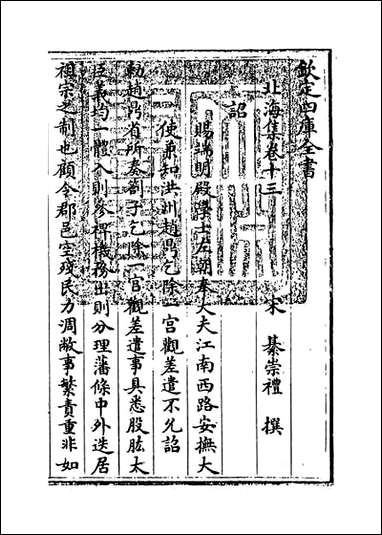 欽定四庫全書
北海集卷十三
宋 綦崇禮 撰
詔
賜端明殿學士左朝奉大夫江南西路安撫大
使兼知洪州趙鼎乞除一宫觀差遣不允詔
勅趙鼎省所奏劄子乞除一宫觀差遣事具悉股肱大
臣義均一體入則參裨機務出則分理藩條中外迭居
祖宗之制也顧今郡邑空殘民力凋敝事繁責重非如